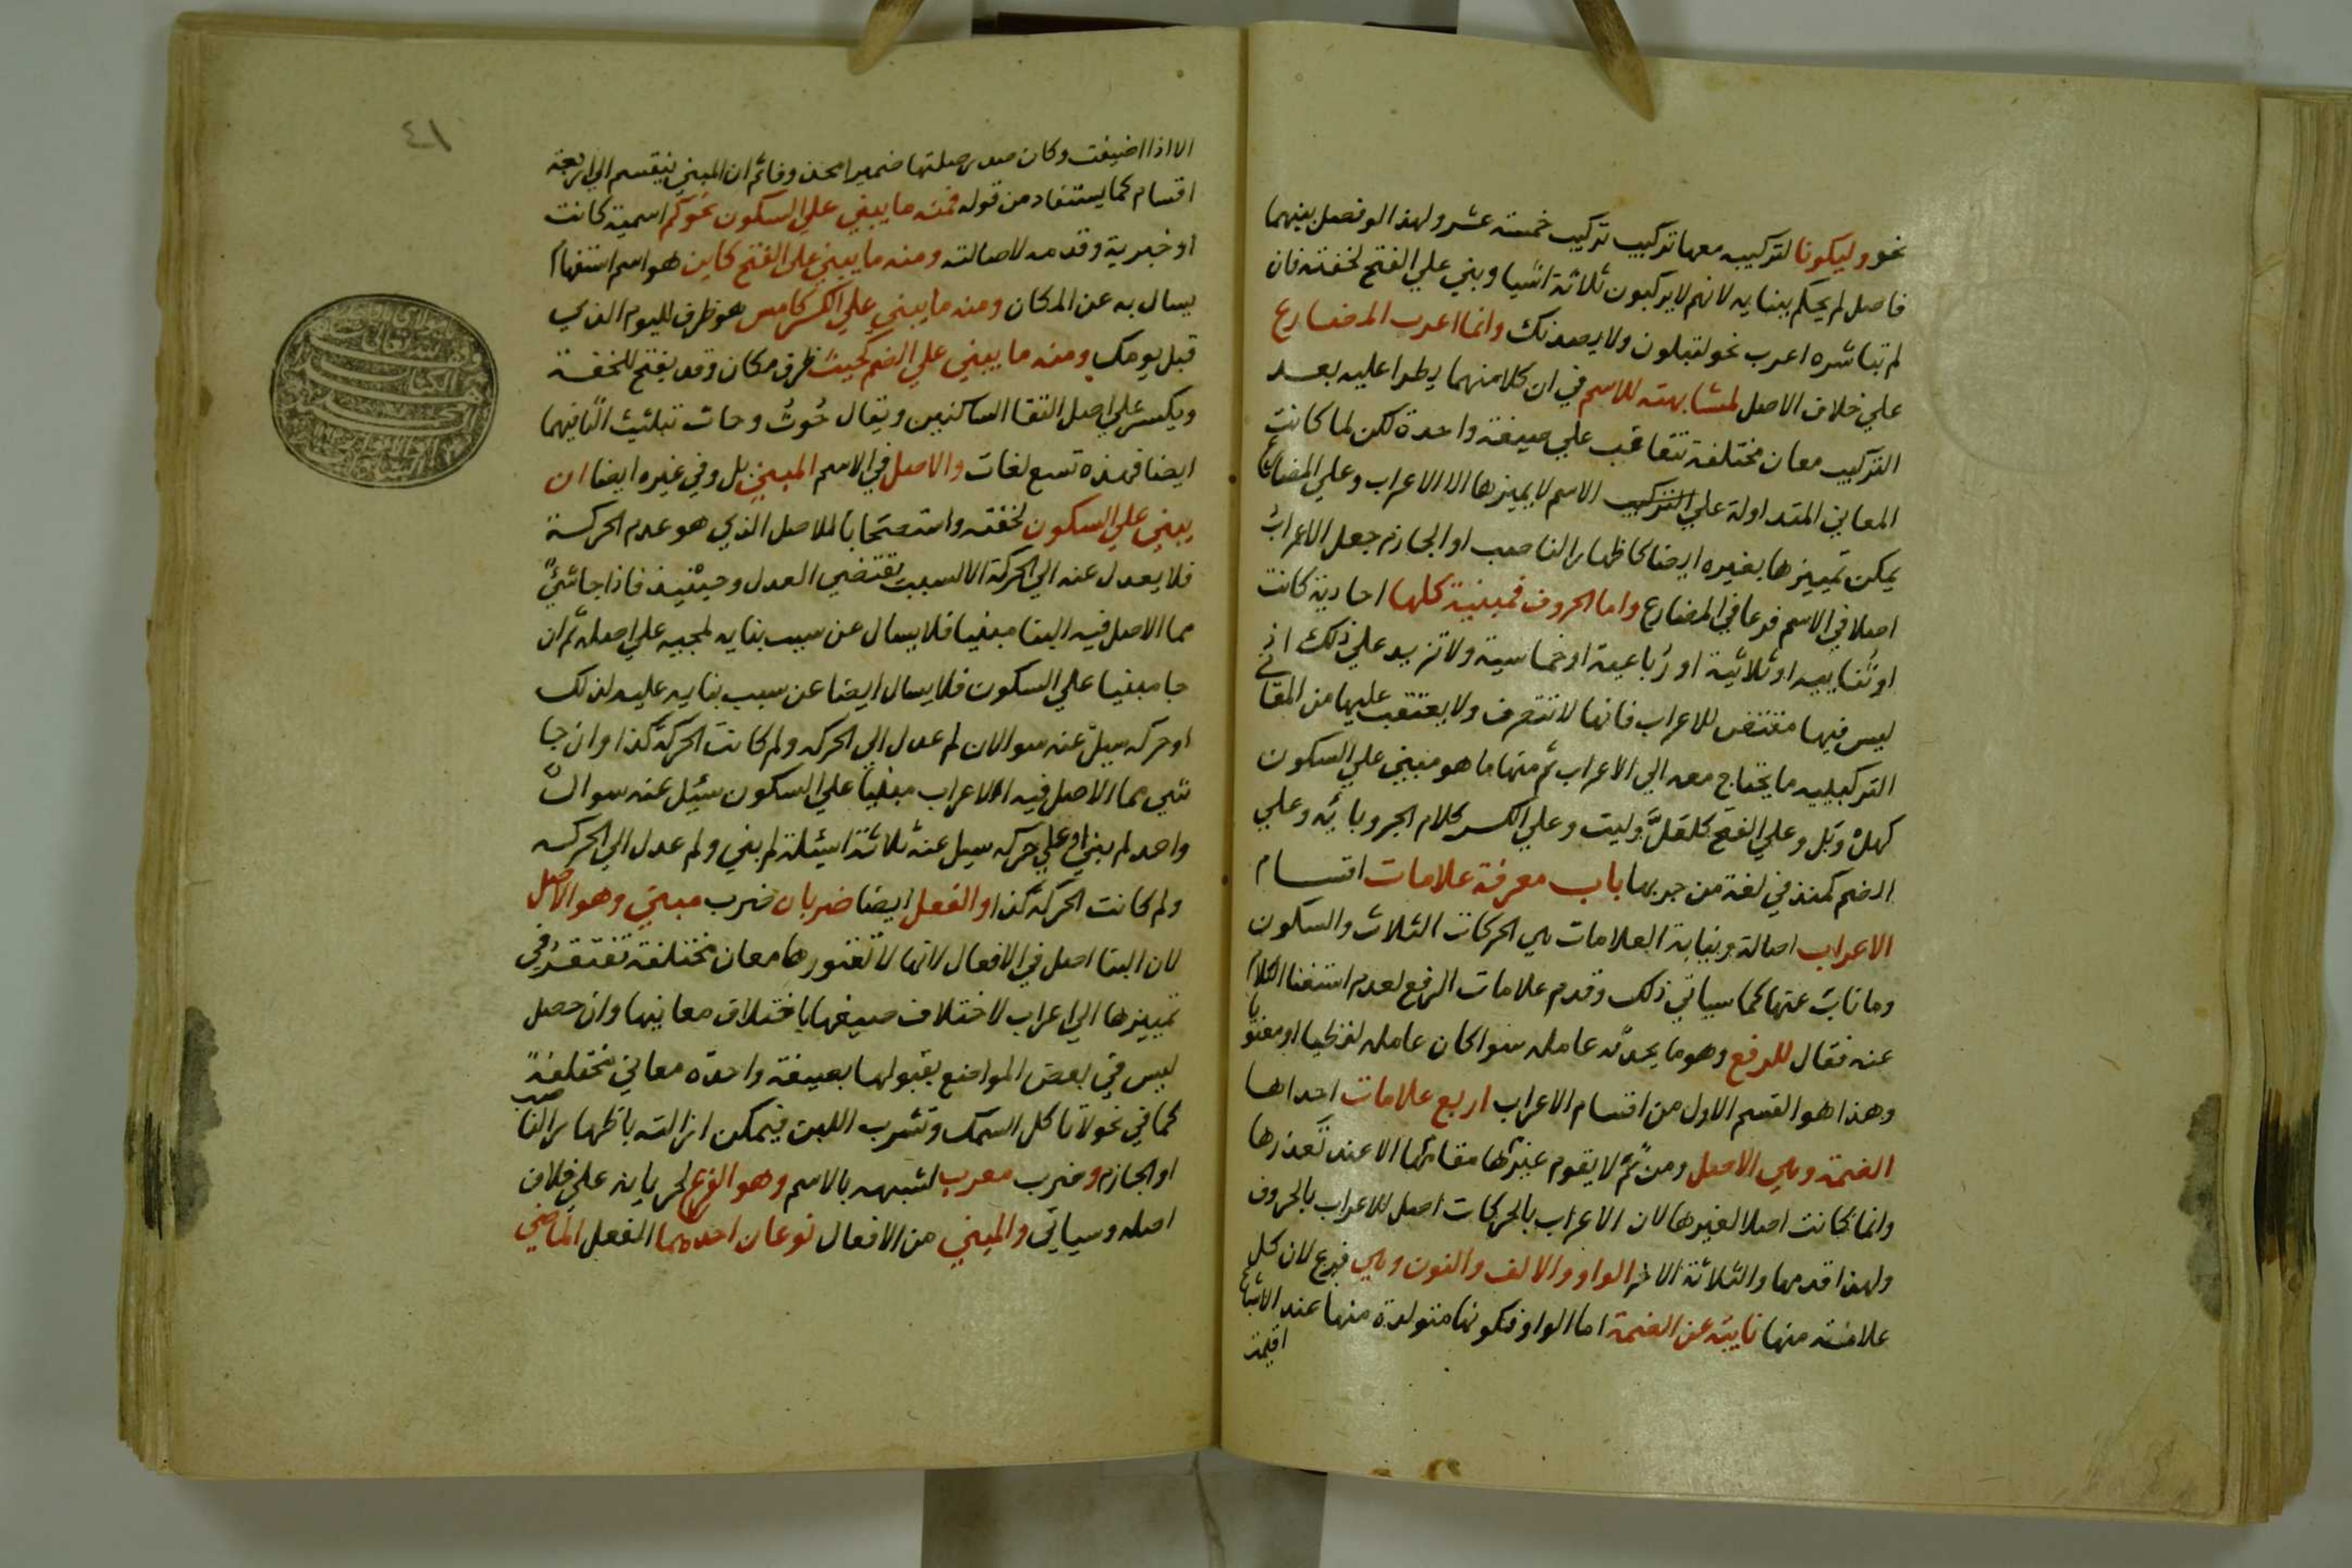 نحو وليكونا لتركيبه معها تركيب تركيب خمسة عشر ولهذا لو فصل بينهما
فاصل لم يحكم ببنايه لانهم لا يركبون ثلاثة اشيا وبني علي الفتح لخفته فان
لم تباشره اعرب نحو لتبلون ولا يصدنك وانما اعرب المضارع
علي خلاف الاصل لمشابهته للاسم في ان كلا منهما يطرا عليه بعد
التركيب معان مختلفة تتعاقب علي صيغة واحدة لكن لما كانت
المعاني المتداولة علي التركيب الاسم لا يميزها الا الاعراب وعلي المضارع
يمكن تمييزها بغيره ايضا كاظهار الناصب او الجازم جعل الاعراب
اصلا في الاسم فرعا في المضارع واما الحروف فمبنية كلها احادية كانت
او ثنايية او ثلاثية او رباعية او خماسية ولا تزيد علي ذلك اذ
ليس فيها مقتض للاعراب فانها لا تتصرف ولا يعتقب عليها من المعاني
التركيبيه ما يحتاج معه الي الاعراب ثم منها ما هو مبني علي السكون
كهل وبل وعلي الفتح كلعلّ وليت وعلي الكسر كلام الجر وبائه وعلي
الضم كمنذ في لغة من جر بها باب معرفة علامات اقسام
الاعراب اصالة ونيابة العلامات هي الحركات الثلاث والسكون
وما ناب عنها كما سياتي ذلك وقدم علامات الرفع لعدم استغنا الكلام
عنه فقال للرفع وهو ما يحدثه عامله سوا كان عامله لفظيا او معنويا
وهذا هو القسم الاول من اقسام الاعراب اربع علامات احداها
الضمة وهي الاصل ومن ثَمَّ لا يقوم غيرها مقامها الا عند تعذرها
وانما كانت اصلا لغيرها لان الاعراب بالحركات اصل للاعراب بالحروف
ولهذا قدمها والثلاثة الاخر الواو والالف والنون وهي فرع لان كل
علامة منها نايبة عن الضمة اما الواو فلكونها متولدة منها عند الاشباع
اقيمت
٤١
الا اذا اضيفت وكان صدر صلتها ضميرا محذوفا ثم ان المبني ينقسم الي اربعة
اقسام كما يستفاد من قوله فمنه ما يبني علي السكون نحو كم اسمية كانت
او خبرية وقدمه لاصالته ومنه ما يبني علي الفتح كاين هو اسم استفهام
يسال به عن المكان ومنه ما يبني علي الكسر كامس هو ظرف لليوم الذي
قبل يومك ومنه ما يبني علي الضم كحيث ظرف مكان وقد يفتح للخفة
ويكسر علي اصل التقا الساكنين ويقال حُوث وحاث بتثليث الثا فيهما
ايضا فهذه تسع لغات والاصل في الاسم المبني بل وفي غيره ايضا ان
يبني علي السكون لخفته واستصحابا للاصل الذي هو عدم الحركة
فلا يعدل عنه الي الحركة الا لسبب يقتضي العدل وحينيذ فاذا جا شيء
مما الاصل فيه البنا مبنيا فلا يسال عن سبب بنايه لمجيه علي اصله ثم ان
جا مبنيا علي السكون فلا يسال ايضا عن سبب بنايه عليه لذلك
او حركه سيل عنه سوالان لم عدل الي الحركه ولم كانت الحركة كذا وان جا
شي مما الاصل فيه الاعراب مبنيا علي السكون سئل عنه سوال
واحد لم بني او علي حركه سيل عنه ثلاثة اسئلة لم بني ولم عدل الي الحركه
ولم كانت الحركة كذا والفعل ايضا ضربان ضرب مبني وهو الاصل
لان البنا اصل في الافعال لانها لا تعتورها معان مختلفة تفتقر في
تمييزها الي اعراب لاختلاف صيغها باختلاف معانيها وان حصل
لبس في بعض المواضع بقبولها بصيغة واحده معاني مختلفة
كما في نحو لا تاكل السمك وتشرب اللبن فيمكن ازالته باظهار الناصب
او الجازم وضرب معرب لشبهه بالاسم وهو الفرع لجريانه علي خلاف
اصله وسياتي والمبني من الافعال نوعان احدهما الفعل الماضي